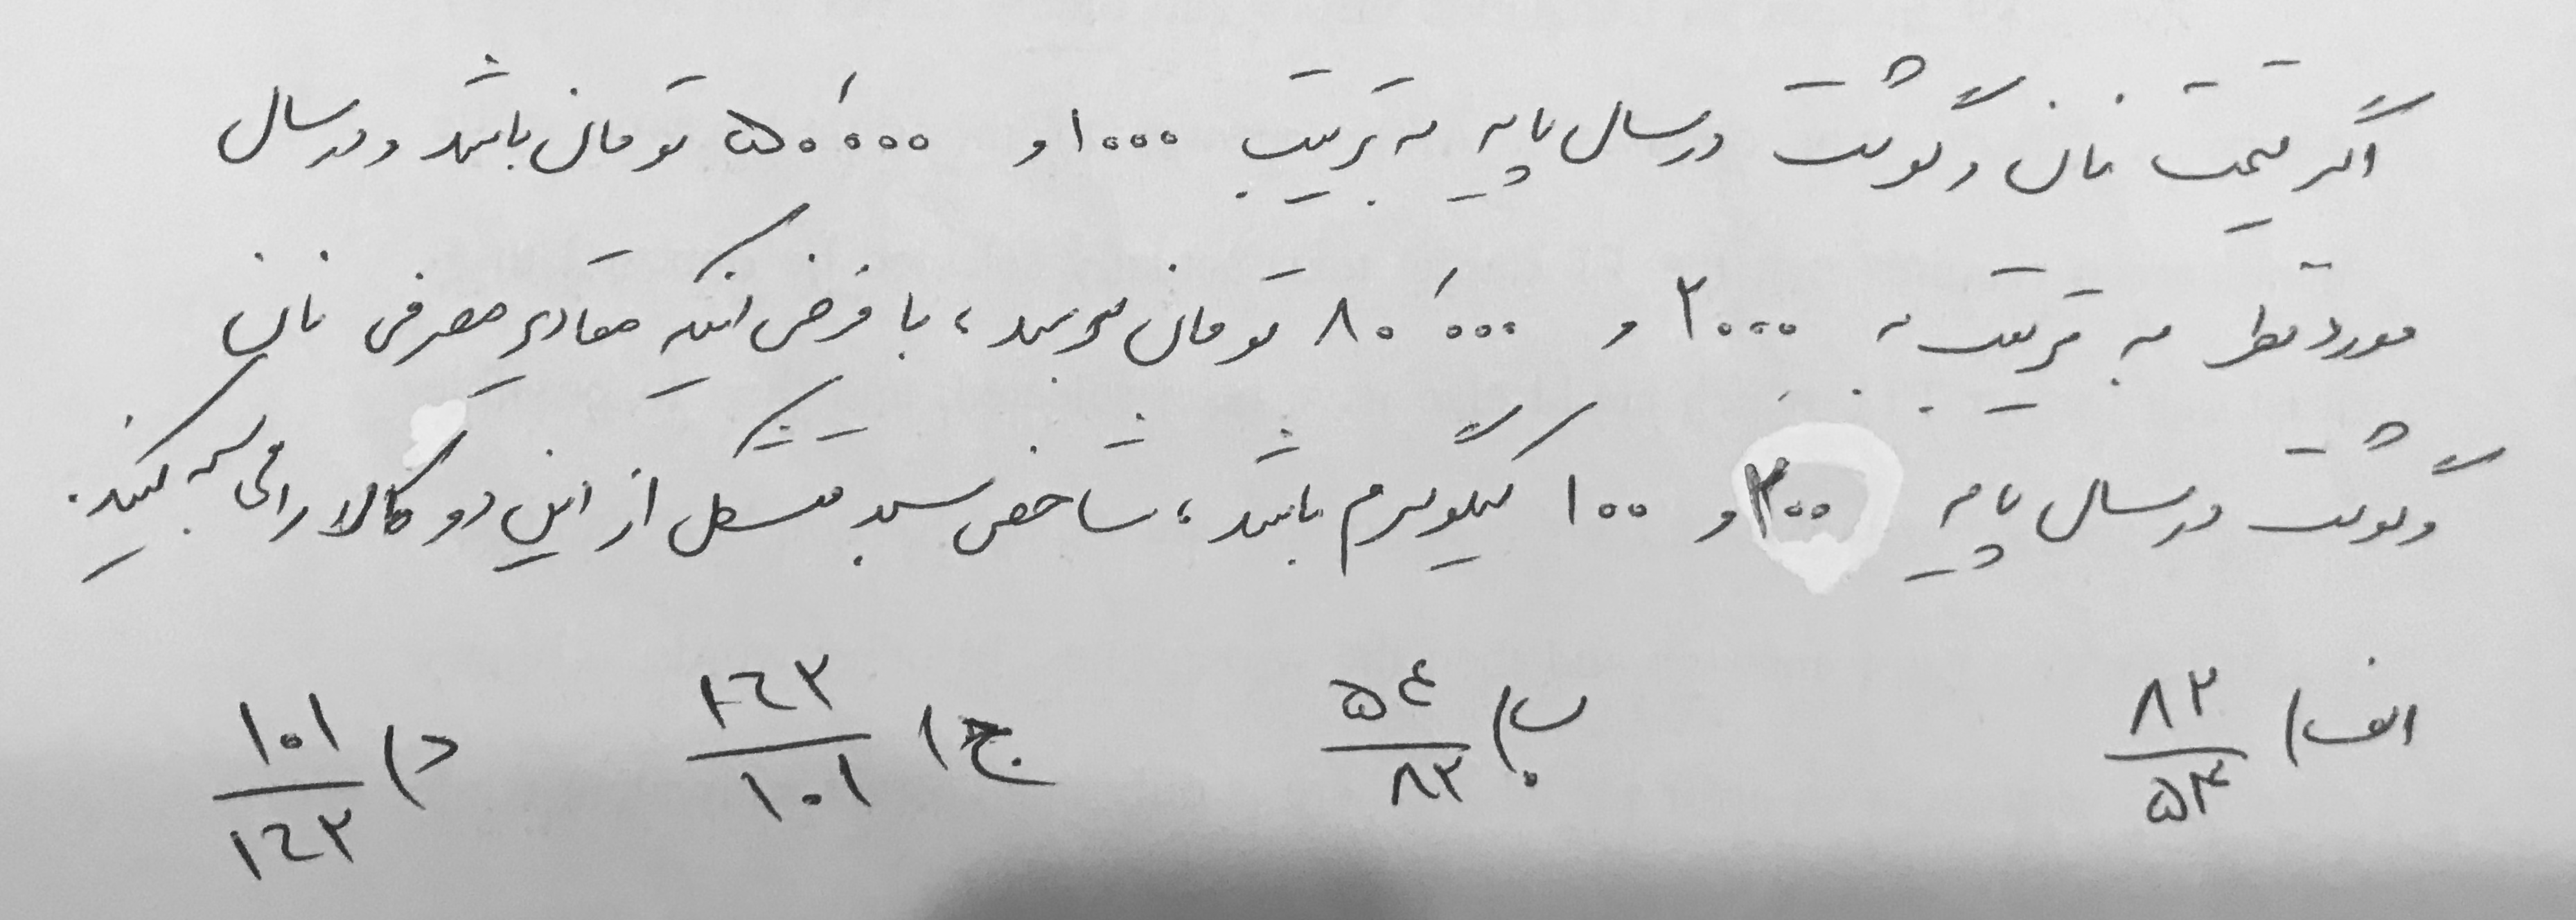 اگر قیمت نان و گوشت در سال پایه به ترتیب ۱۰۰۰ و ۵۰٬۰۰۰ تومان باشد و در سال
مورد نظر به ترتیب به ۲۰۰۰ و ۸۰٬۰۰۰ تومان برسد، با فرض اینکه مقادیر مصرفی نان
و گوشت در سال پایه ۲۰۰ و ۱۰۰ کیلوگرم باشد، شاخص سبد متشکل از این دو کالا را محاسبه کنید.
الف) ۸۲/۵۴ ب) ۵۴/۸۲ ج) ۱۶۲/۱۰۱ د) ۱۰۱/۱۶۲